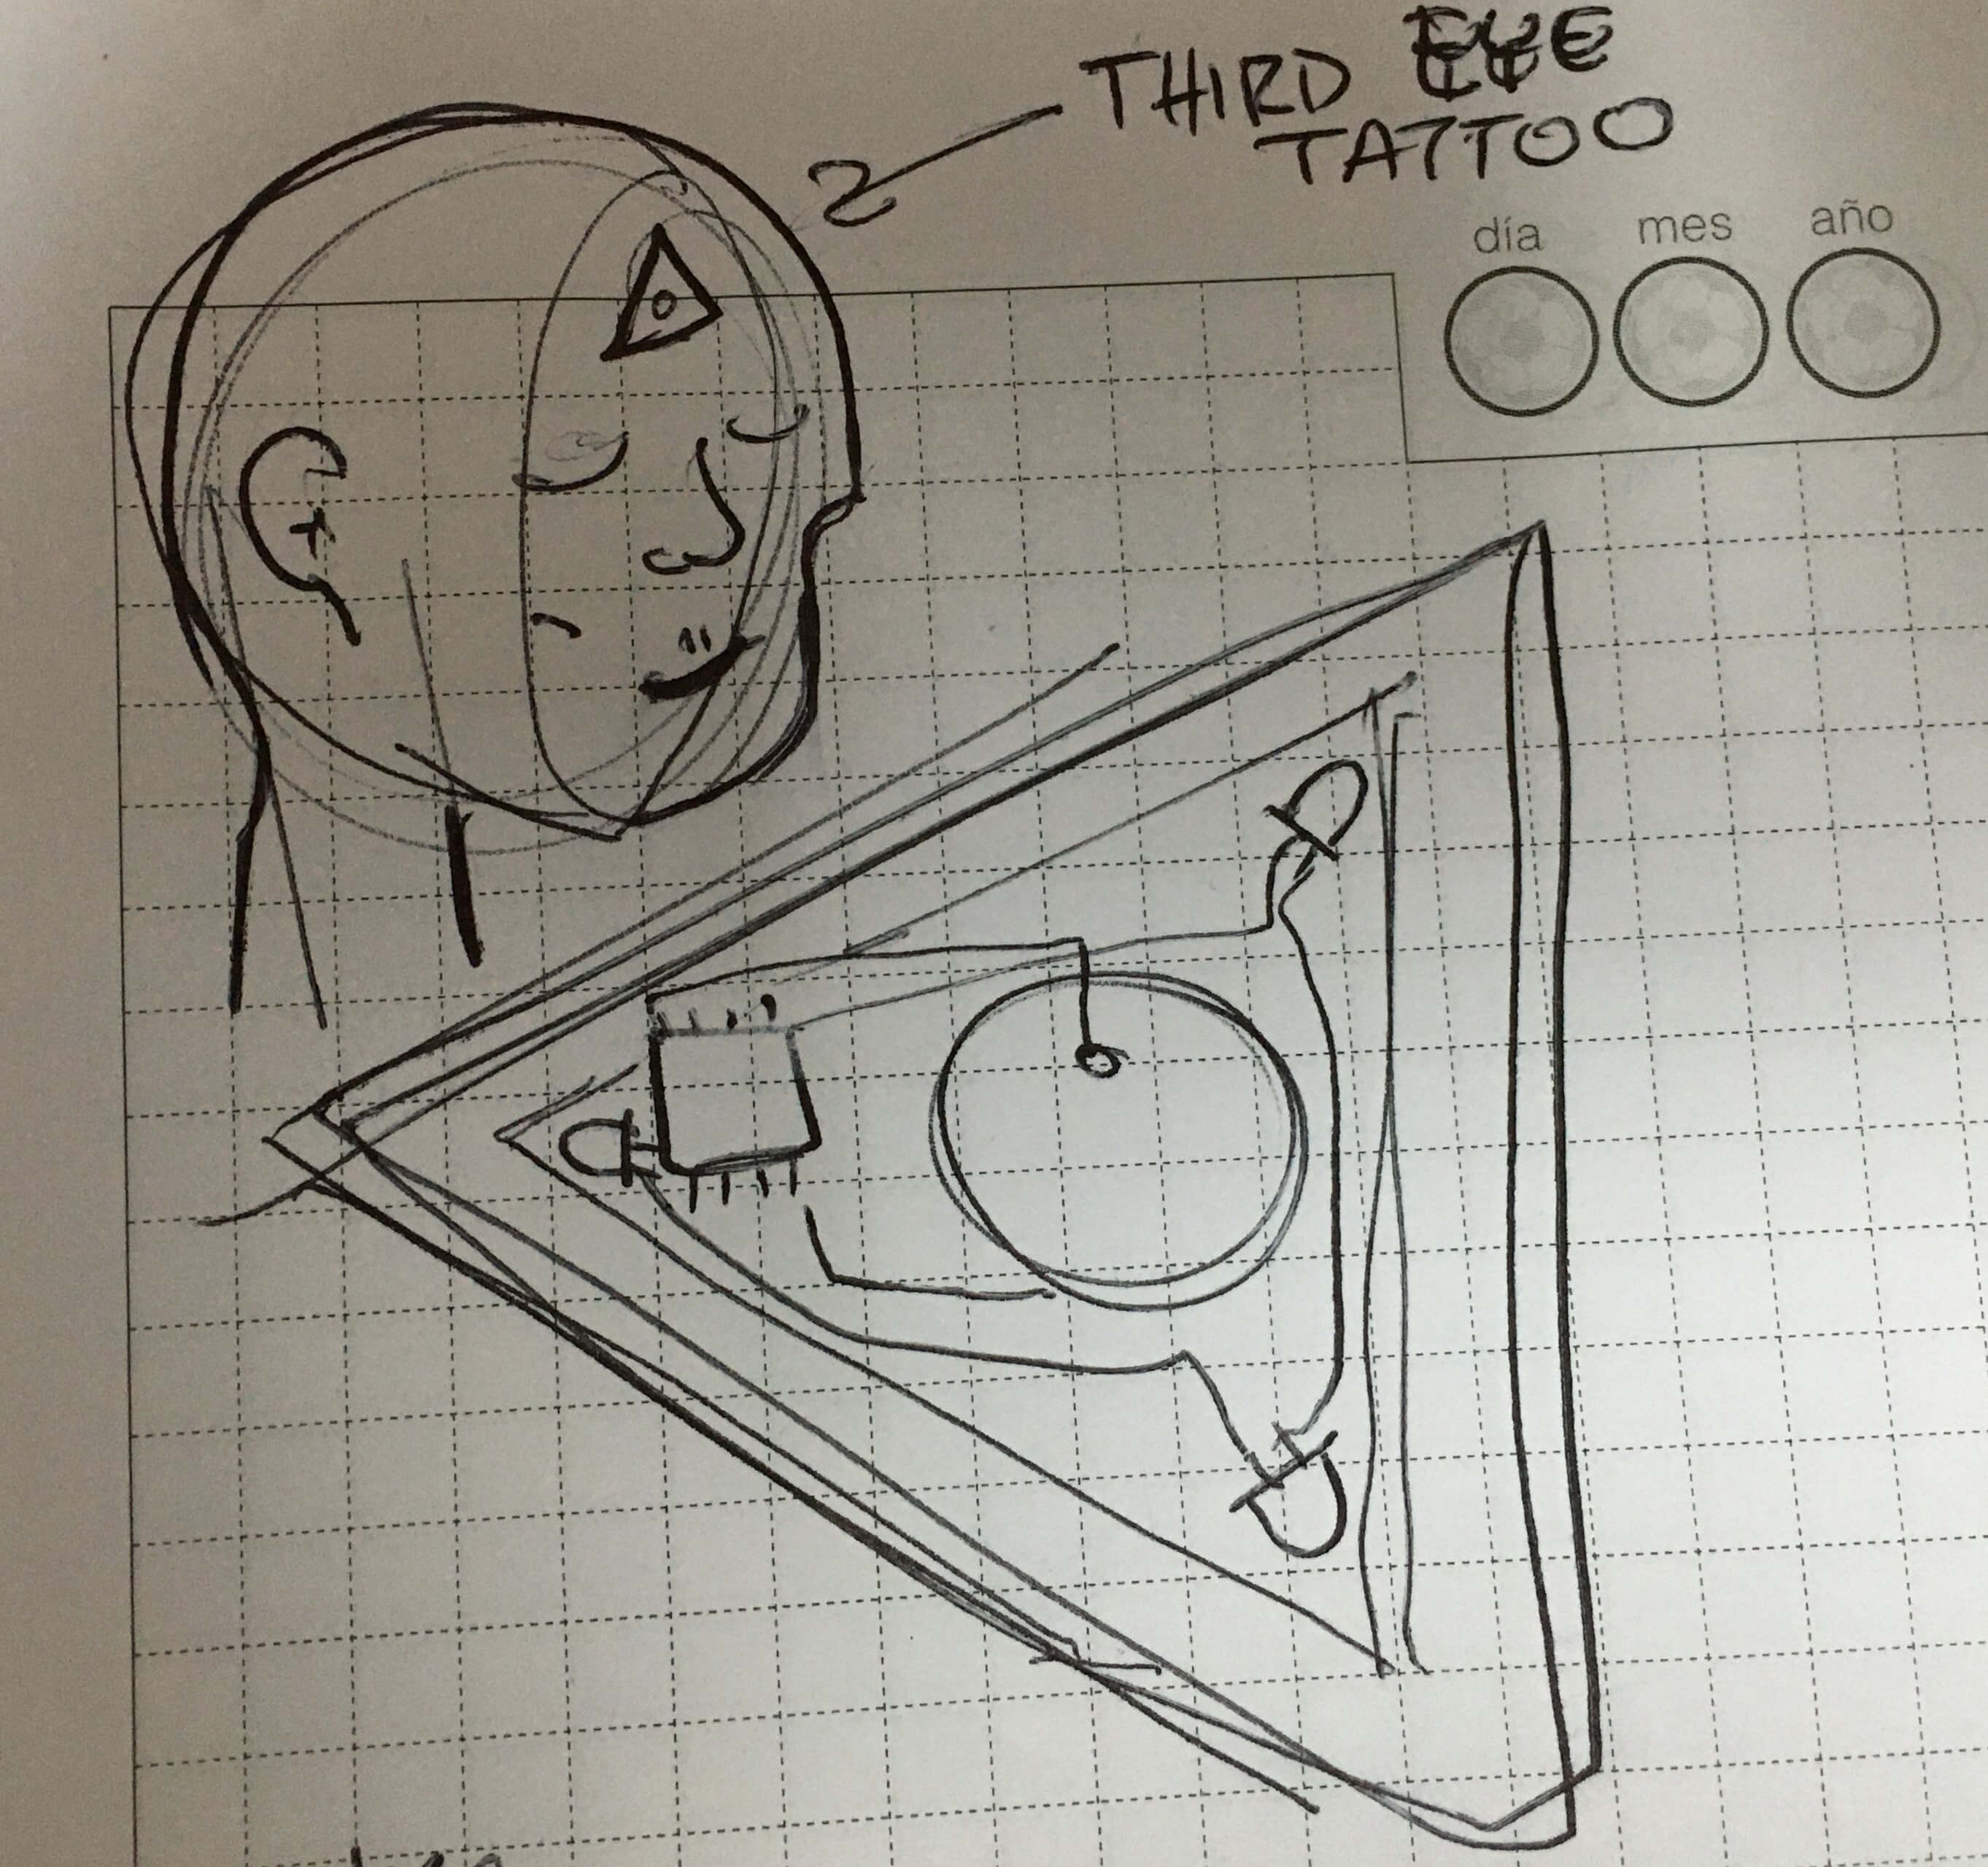 THIRD EYE
TATTOO
día mes año